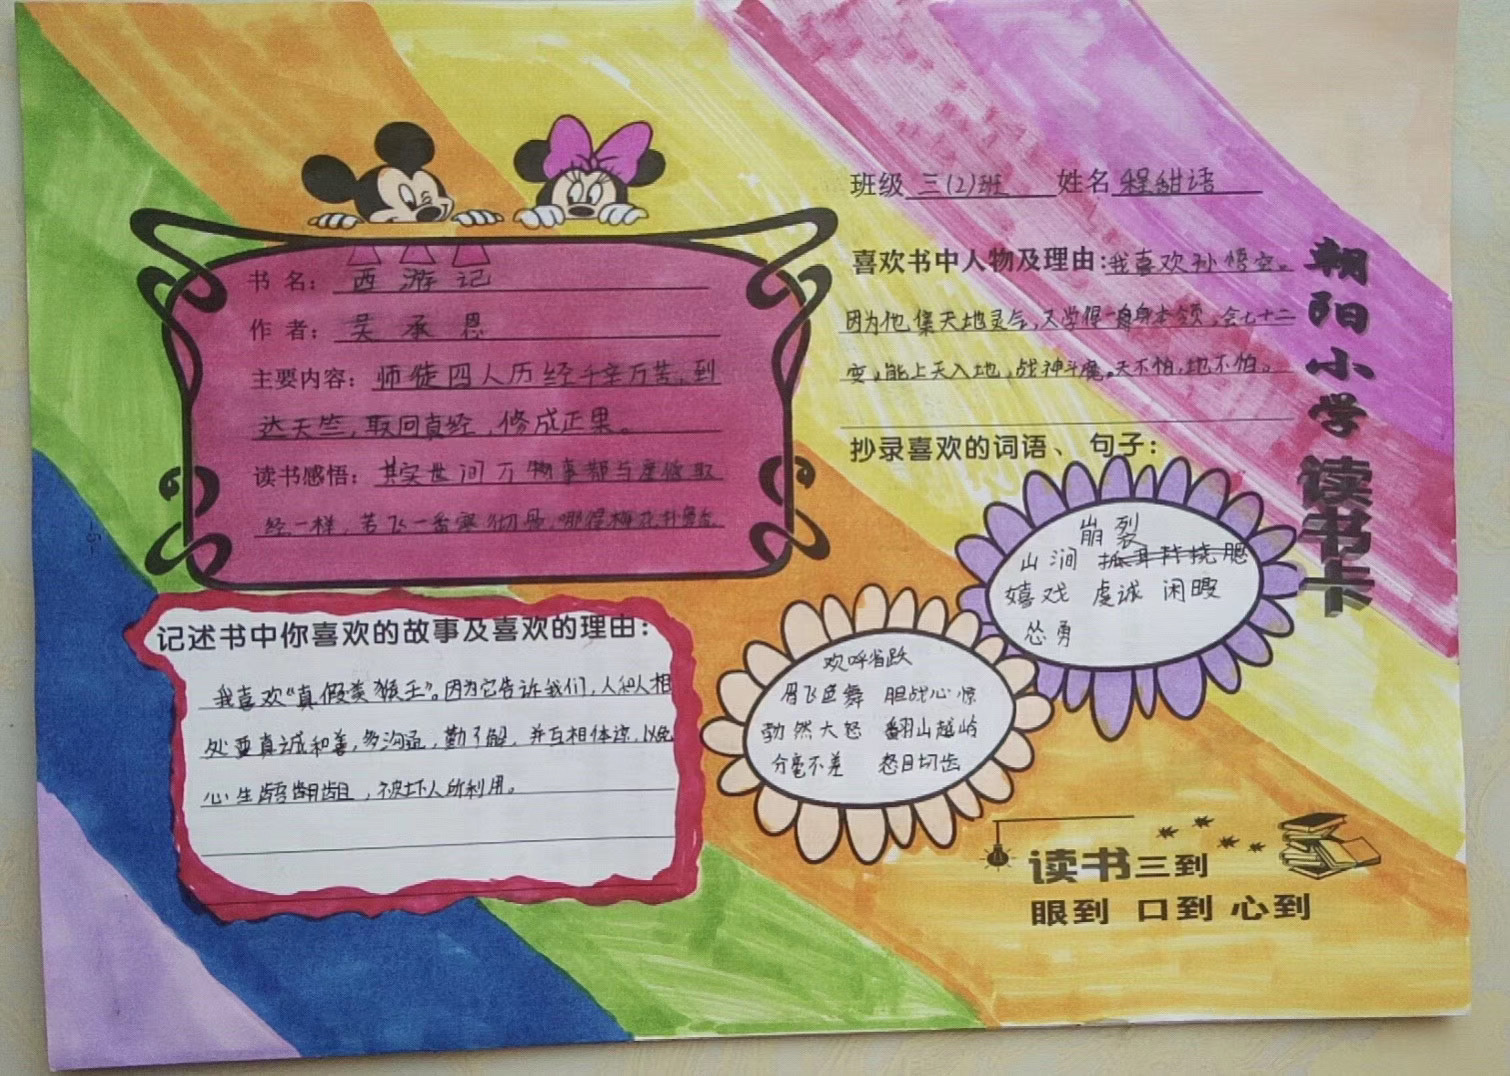 班级 三(2)班 姓名 程甜语
朝阳小学 读书卡
书 名： 西游记
作 者： 吴承恩
主要内容： 师徒四人历经千辛万苦，到
达天竺，取回真经，修成正果。
读书感悟： 其实世间万物事都与唐僧取
经一样，若飞一番寒彻骨，哪得梅花扑鼻香
喜欢书中人物及理由：我喜欢孙悟空。
因为他集天地灵气，又学得一身本领，会七十二
变，能上天入地，战神斗魔。天不怕，地不怕。
抄录喜欢的词语、句子：
崩裂
山涧 抓耳挠腮
嬉戏 虔诚 闲暇
怂勇
欢呼省跃
眉飞色舞 胆战心惊
勃然大怒 翻山越岭
分毫不差 怒日切齿
记述书中你喜欢的故事及喜欢的理由：
我喜欢“真假美猴王”。因为它告诉我们，人和人相
处要真诚和善，多沟通，勤了解，并互相体谅，以免
心生龉龃，被坏人所利用。
读书三到
眼到 口到 心到